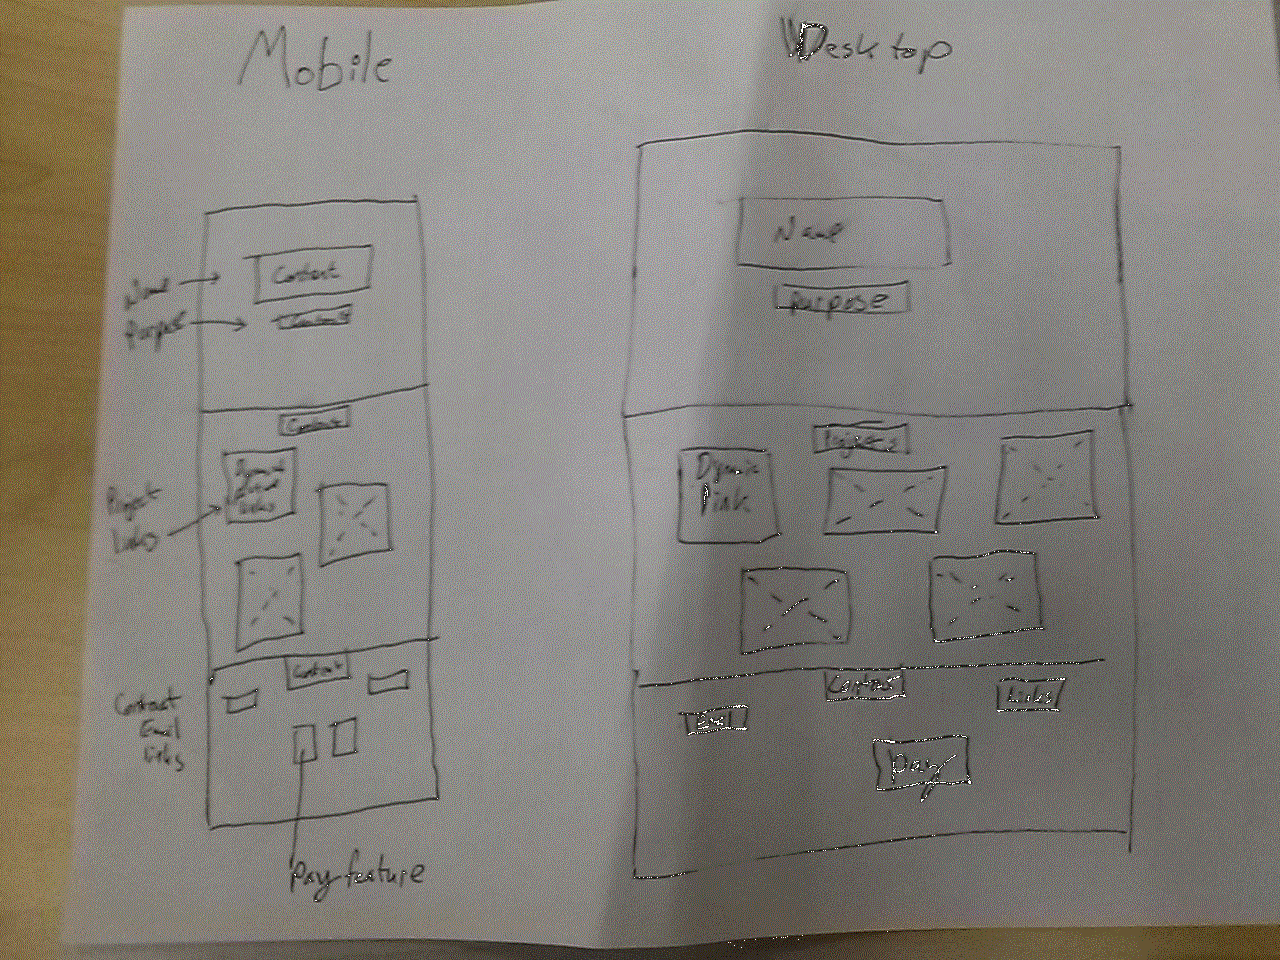 Mobile
Name
Purpose
Content
Content
Project
Links
Dynamic
Links
Contact
Email
Links
Content
Pay feature
Desktop
Name
Purpose
Projects
Dynamic
Link
Contact
Email
Links
Pay